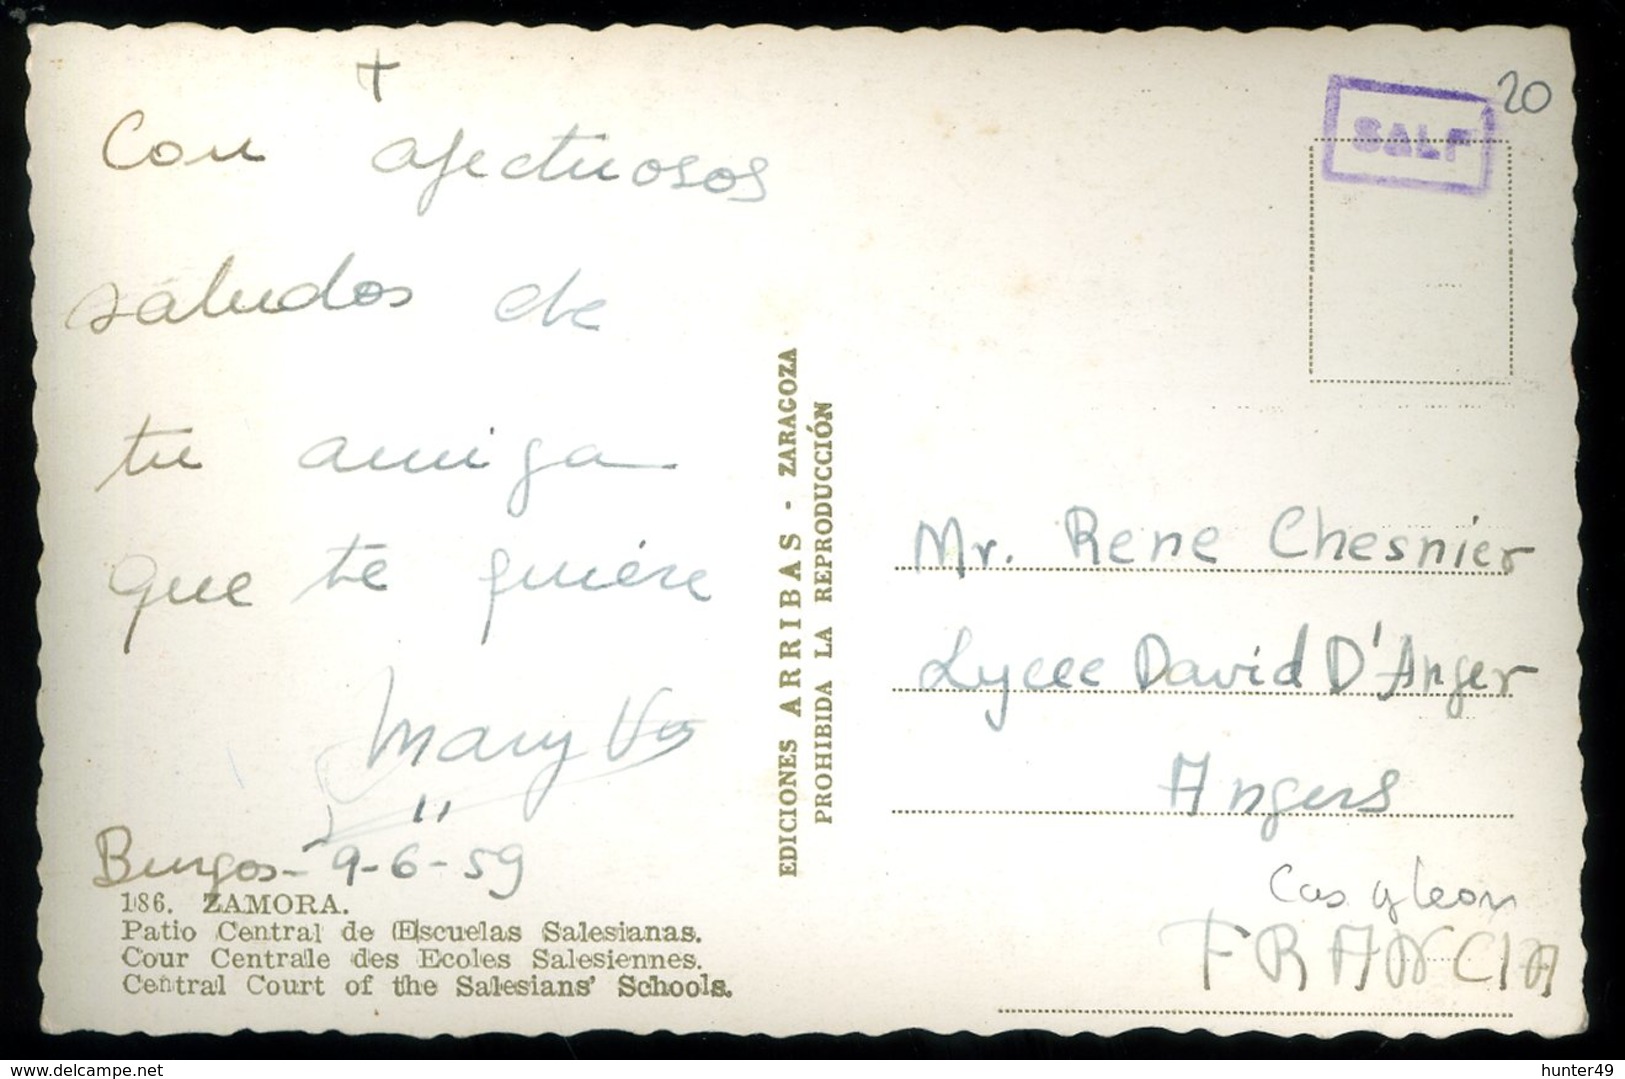 +
Con afectuosos
saludos de
tu amiga
que te quiere
Mary
Burgos - 9-6-59
186. ZAMORA.
Patio Central de Escuelas Salesianas.
Cour Centrale des Ecoles Salesiennes.
Central Court of the Salesians' Schools.
EDICIONES ARRIBAS - ZARAGOZA
PROHIBIDA LA REPRODUCCIÓN
20
SALF
Mr. Rene Chesnier
Lycee David D'Anger
Angers
Cas y leon
FRANCIA
delcampe.net
hunter49